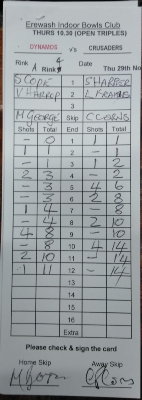 Erewash Indoor Bowls Club
THURS 10.30 (OPEN TRIPLES)
DYNAMOS v's CRUSADERS
Rink A Rink 4 Date Thu 29th No
S COPE 1 S HARPER
V HARROP 2 L FRAME
3
M GEORGE Skip C CLORNS
Shots Total End Shots Total
- 0 1 1 1
- - 2 - 1
- 1 3 1 2
2 3 4 - 2
- 3 5 4 6
- 3 6 2 8
1 4 7 - 8
- 4 8 2 10
4 8 9 - 10
- 8 10 4 14
2 10 11 - 14
1 11 12 - 14
13
14
15
16
Extra
Please check & sign the card
Home Skip Away Skip